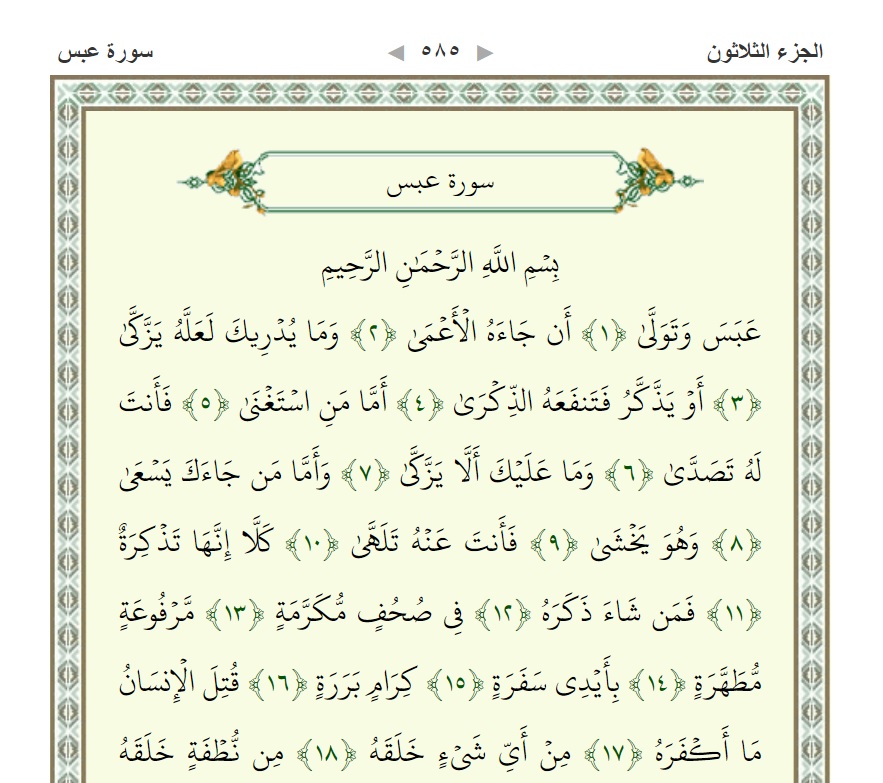 الجزء الثلاثون ◄ ٥٨٥ ► سورة عبس
سورة عبس
بِسْمِ اللَّهِ الرَّحْمَٰنِ الرَّحِيمِ
عَبَسَ وَتَوَلَّىٰ ﴿١﴾ أَن جَاءَهُ الْأَعْمَىٰ ﴿٢﴾ وَمَا يُدْرِيكَ لَعَلَّهُ يَزَّكَّىٰ
﴿٣﴾ أَوْ يَذَّكَّرُ فَتَنفَعَهُ الذِّكْرَىٰ ﴿٤﴾ أَمَّا مَنِ اسْتَغْنَىٰ ﴿٥﴾ فَأَنتَ
لَهُ تَصَدَّىٰ ﴿٦﴾ وَمَا عَلَيْكَ أَلَّا يَزَّكَّىٰ ﴿٧﴾ وَأَمَّا مَن جَاءَكَ يَسْعَىٰ
﴿٨﴾ وَهُوَ يَخْشَىٰ ﴿٩﴾ فَأَنتَ عَنْهُ تَلَهَّىٰ ﴿١٠﴾ كَلَّا إِنَّهَا تَذْكِرَةٌ
﴿١١﴾ فَمَن شَاءَ ذَكَرَهُ ﴿١٢﴾ فِي صُحُفٍ مُّكَرَّمَةٍ ﴿١٣﴾ مَّرْفُوعَةٍ
مُّطَهَّرَةٍ ﴿١٤﴾ بِأَيْدِي سَفَرَةٍ ﴿١٥﴾ كِرَامٍ بَرَرَةٍ ﴿١٦﴾ قُتِلَ الْإِنسَانُ
مَا أَكْفَرَهُ ﴿١٧﴾ مِنْ أَيِّ شَيْءٍ خَلَقَهُ ﴿١٨﴾ مِن نُّطْفَةٍ خَلَقَهُ